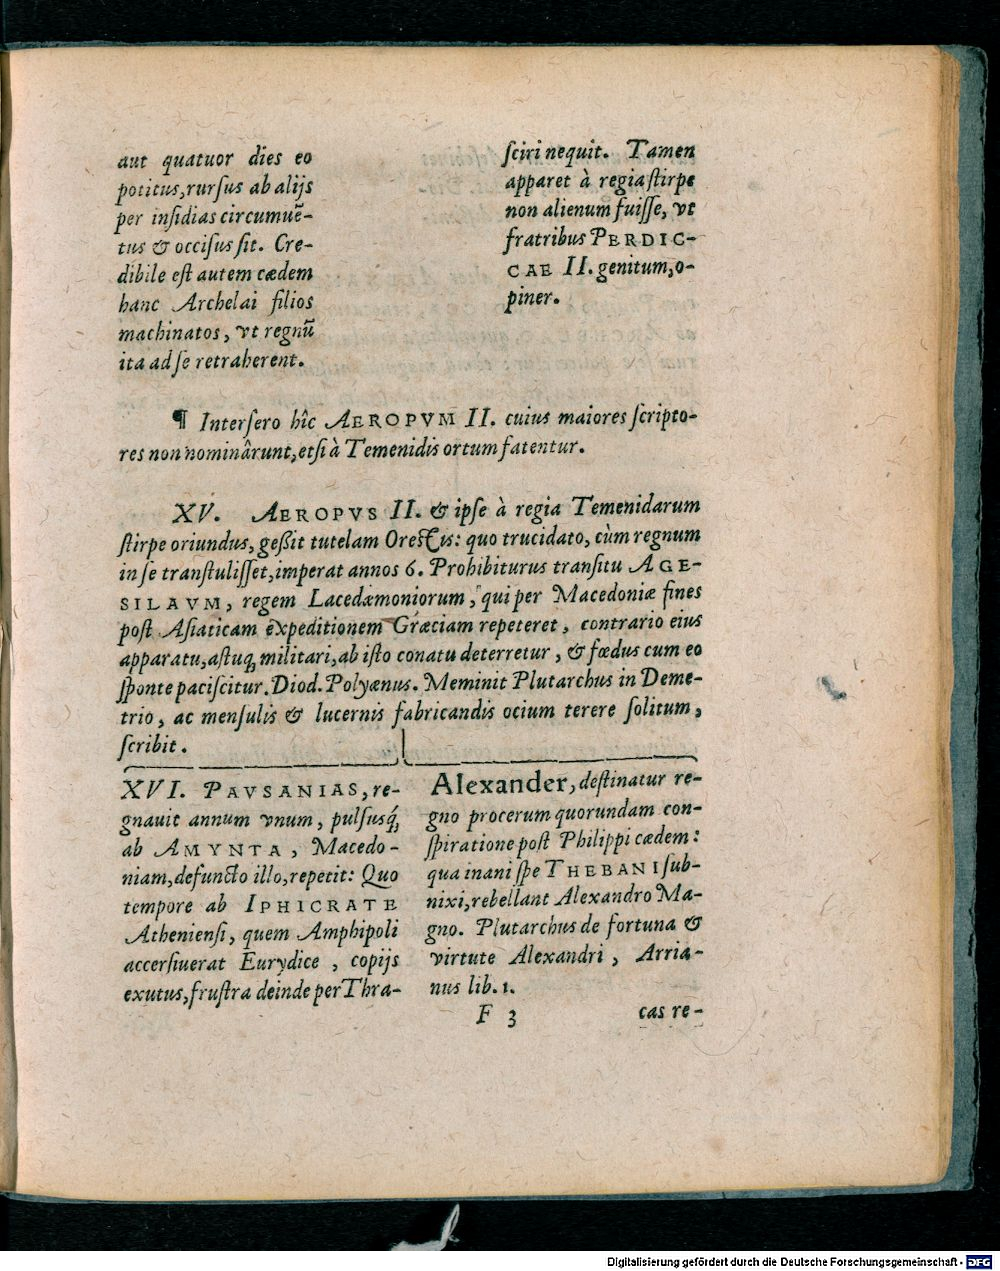 aut quatuor dies eo
potitus, rursus ab alijs
per insidias circumuē-
tus & occisus sit. Cre-
dibile est autem cædem
hanc Archelai filios
machinatos, vt regnū
ita ad se retraherent.
sciri nequit. Tamen
apparet à regia stirpe
non alienum fuisse, vt
fratribus PERDIC-
CAE II. genitum, o-
piner.
¶ Intersero hîc AEROPVM II. cuius maiores scripto-
res non nominârunt, etsi à Temenidis ortum fatentur.
XV. AEROPVS II. & ipse à regia Temenidarum
stirpe oriundus, geßit tutelam Orestis: quo trucidato, cùm regnum
in se transtulisset, imperat annos 6. Prohibiturus transitu AGE-
SILAVM, regem Lacedæmoniorum, qui per Macedoniæ fines
post Asiaticam expeditionem Græciam repeteret, contrario eius
apparatu, astuq́, militari, ab isto conatu deterretur, & fœdus cum eo
sponte paciscitur. Diod. Polyænus. Meminit Plutarchus in Deme-
trio, ac mensulis & lucernis fabricandis ocium terere solitum,
scribit.
XVI. PAVSANIAS, re-
gnauit annum vnum, pulsusq́,
ab AMYNTA, Macedo-
niam, defuncto illo, repetit: Quo
tempore ab IPHICRATE
Atheniensi, quem Amphipoli
accersiuerat Eurydice, copijs
exutus, frustra deinde per Thra-
Alexander, destinatur re-
gno procerum quorundam con-
spiratione post Philippi cædem:
qua inani spe THEBANI sub-
nixi, rebellant Alexandro Ma-
gno. Plutarchus de fortuna &
virtute Alexandri, Arria-
nus lib. 1.
F 3
cas re-
Digitalisierung gefördert durch die Deutsche Forschungsgemeinschaft - DFG